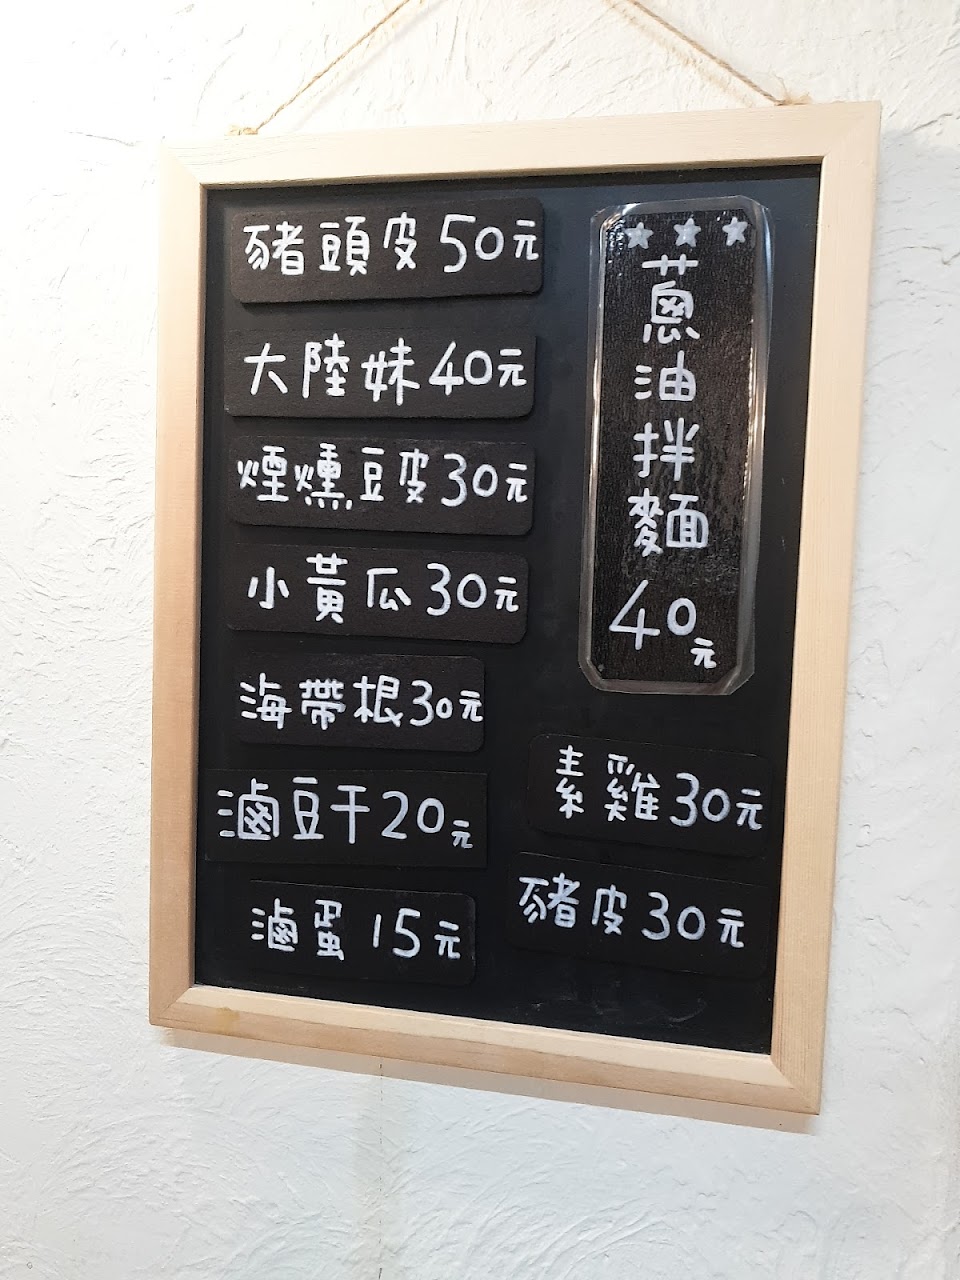 豬頭皮50元
大陸妹40元
煙燻豆皮30元
小黃瓜30元
海帶根30元
滷豆干20元
滷蛋15元
蔥油拌麵40元
素雞30元
豬皮30元